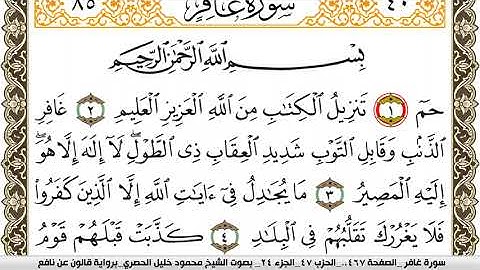 ٨٥ سورة غافر ٤٠
بِسْمِ اللَّهِ الرَّحْمَٰنِ الرَّحِيمِ
حمٓ ١ تَنزِيلُ الْكِتَٰبِ مِنَ اللَّهِ الْعَزِيزِ الْعَلِيمِ ٢ غَافِرِ
الذَّنۢبِ وَقَابِلِ التَّوْبِ شَدِيدِ الْعِقَابِ ذِي الطَّوْلِ لَآ إِلَٰهَ إِلَّا هُوَ
إِلَيْهِ الْمَصِيرُ ٣ مَا يُجَٰدِلُ فِيٓ ءَايَٰتِ اللَّهِ إِلَّا الَّذِينَ كَفَرُوا
فَلَا يَغْرُرْكَ تَقَلُّبُهُمْ فِي الْبِلَٰدِ ٤ كَذَّبَتْ قَبْلَهُمْ قَوْمُ
سورة غافر _الصفحة ٤٦٧.. الحزب ٤٧_الجزء ٢٤_ بصوت الشيخ محمود خليل الحصري_برواية قالون عن نافع